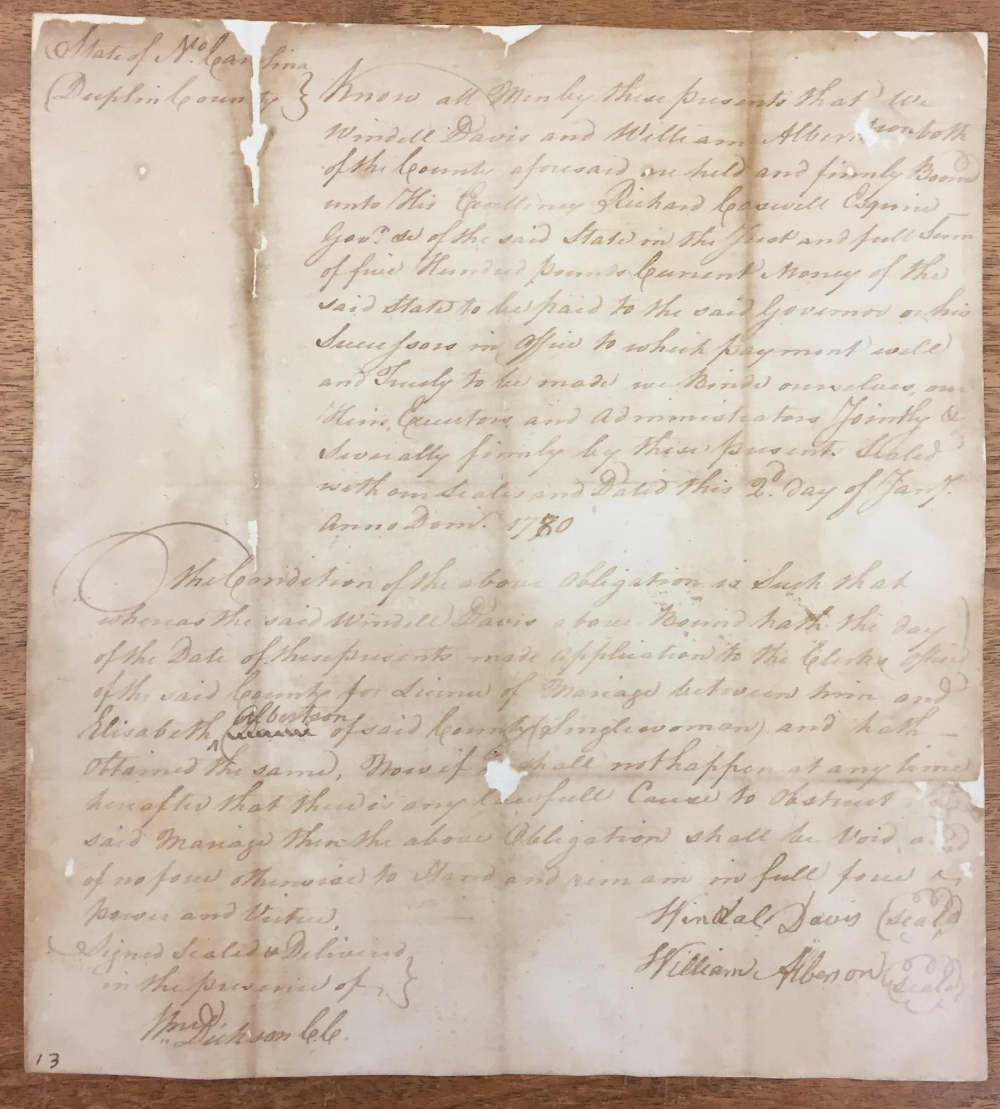 State of No. Carolina
Duplin County } Know all Men by these presents that We
Windell Davis and William Albertson both
of the County aforesaid are held and firmly Bound
unto His Excellency Richard Caswell Esquire
Govr. &c of the said State in the Just and full Sum
of five Hundred pounds Current Money of the
said State to be paid to the said Governor or his
Successors in Office to which payment well
and Truely to be made we Binde ourselves, our
Heirs, Executors, and Administrators Jointly &
Severally firmly by these presents Sealed
with our Seales and Dated this 2d. day of Jany.
Anno Domi. 1780
The Condition of the above Obligation is Such that
whereas the said Windell Davis above Bound hath the day
of the Date of these presents made Application to the Clerks Office
of the said County for Licence of Mariage between him and
Albertson
Elisabeth of said County (Singlewoman) and hath
Obtained the same, Now if it shall not happen at any time
hereafter that there is any Lawfull Cause to Obstruct
said Mariage then the above Obligation shall be Void, and
of no force otherwise to Stand and remain in full force
power and Virtue.
Windal Davis (Seald
Signed Sealed & Delivered
in the presence of, }
William Alberson (Seald
Wm. Dickson CC.
13